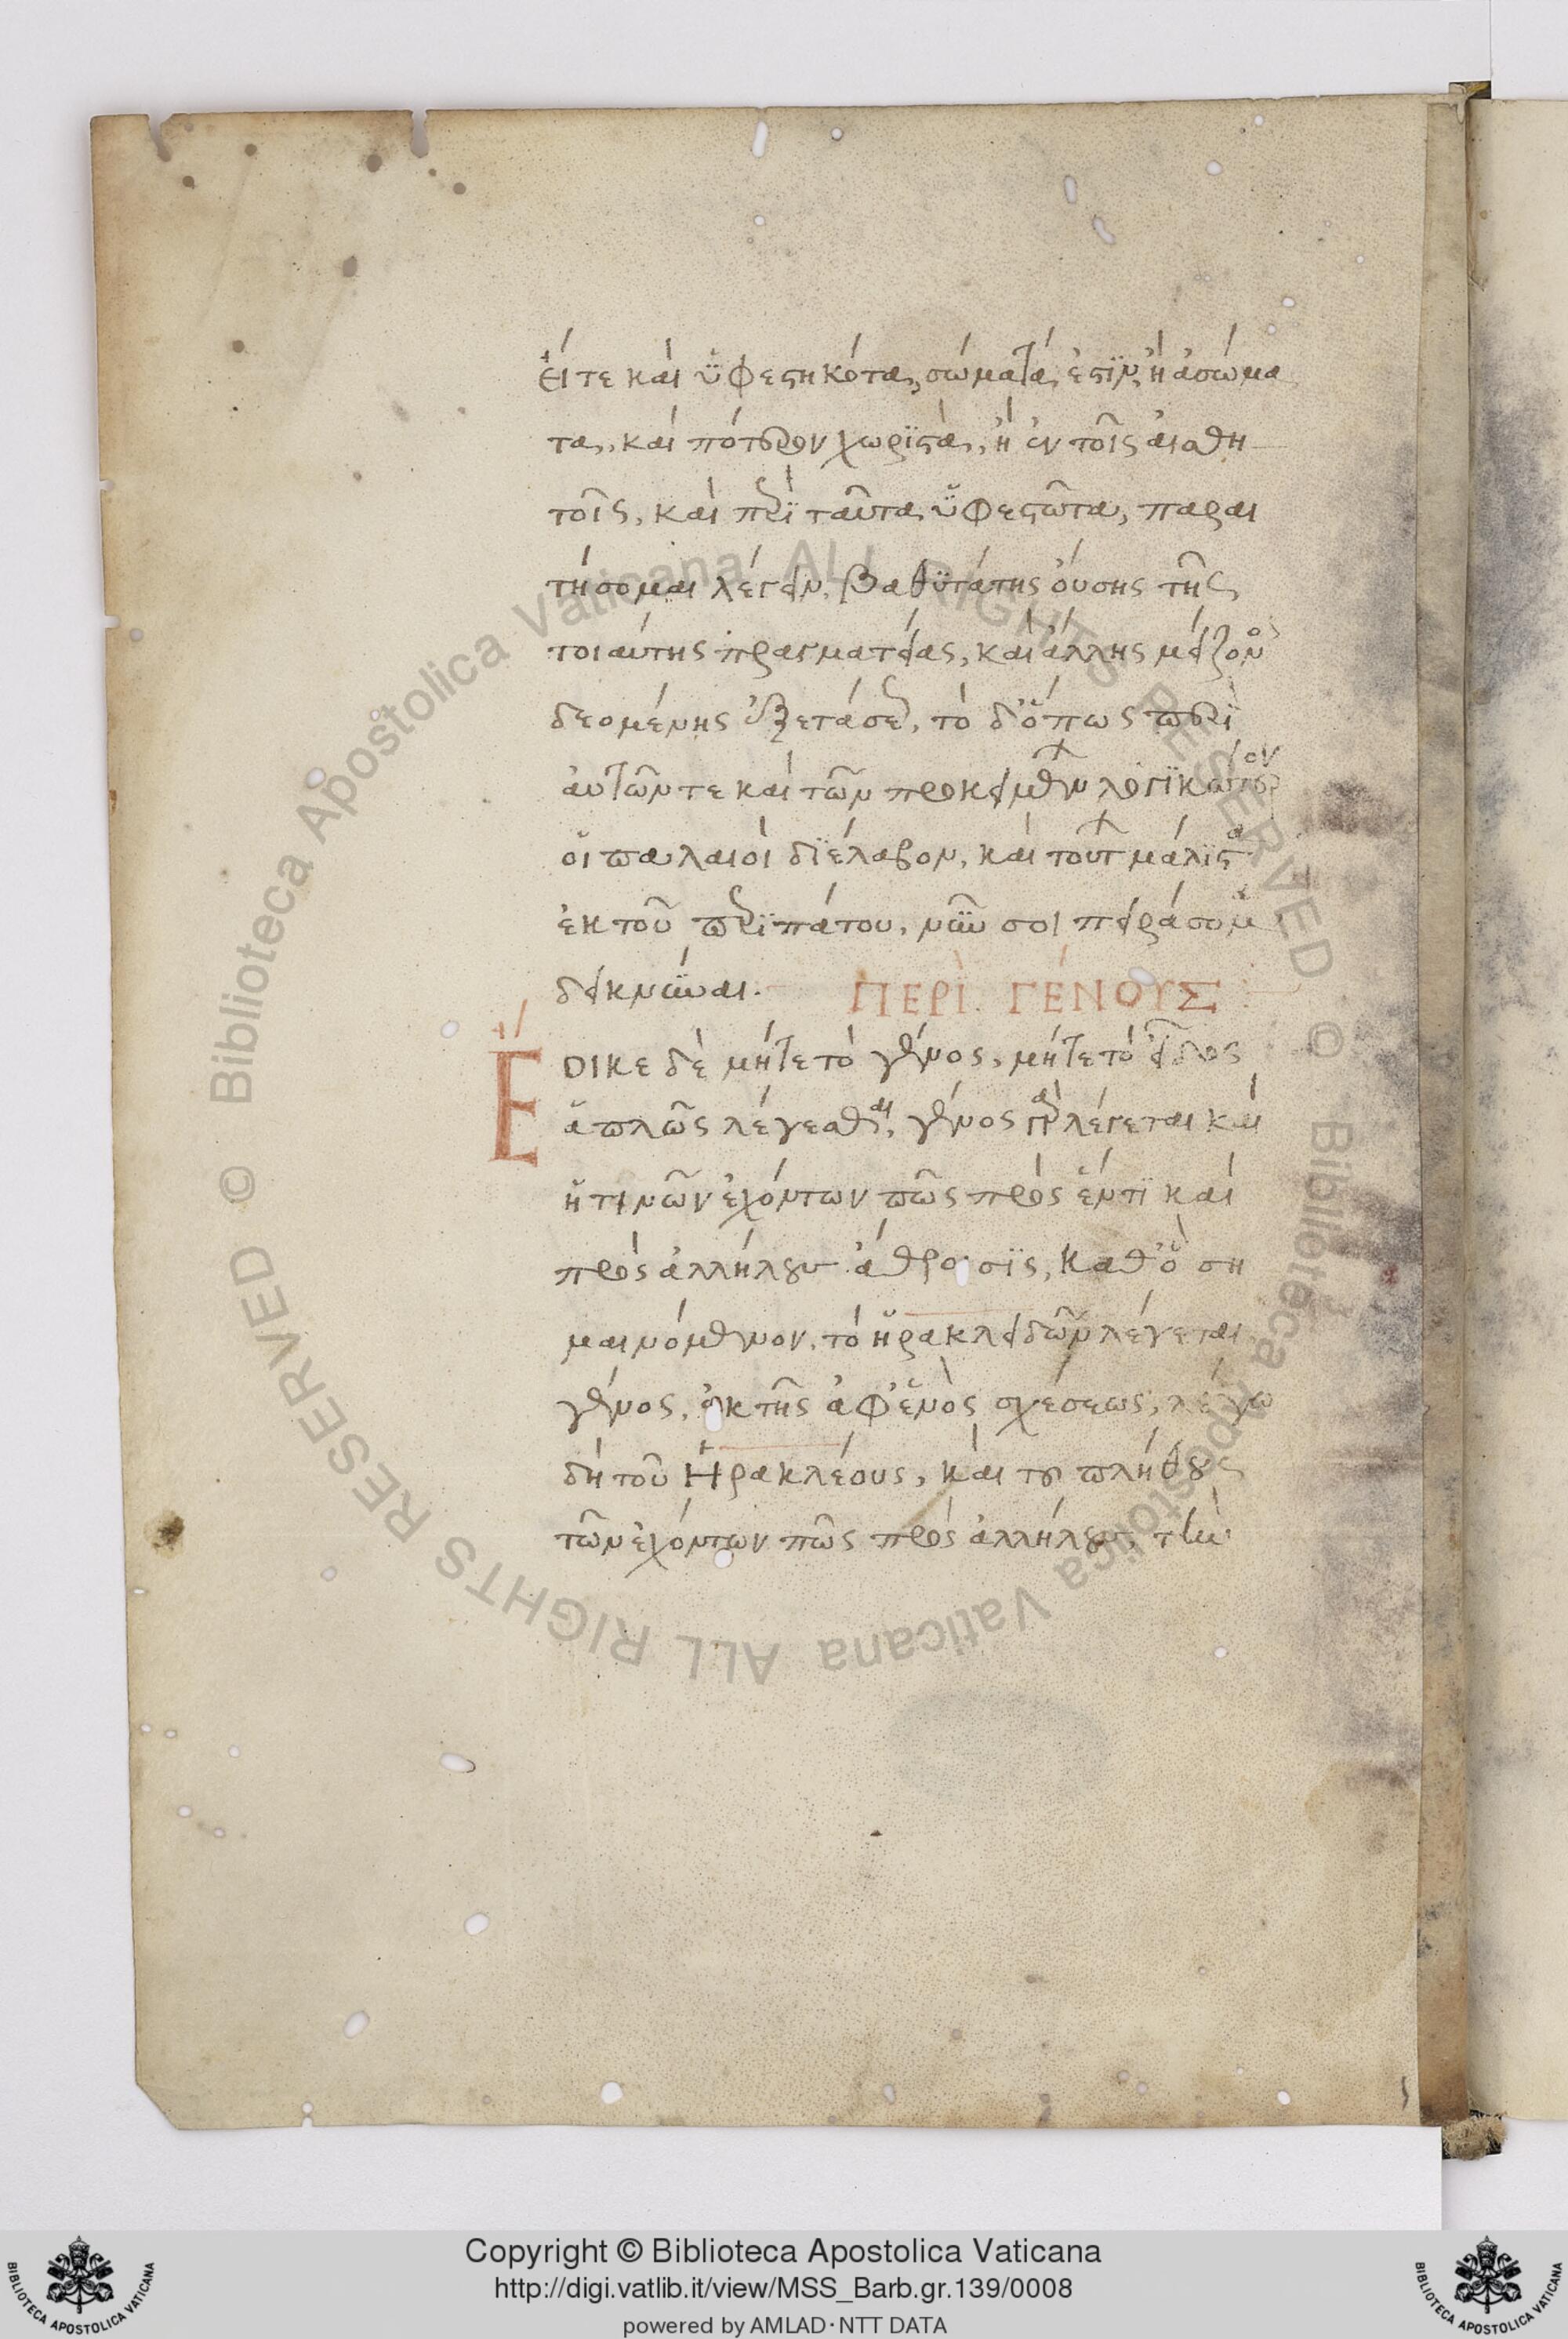 εἴτε καὶ ὑφεστηκότα, σώματά ἐστιν, ἢ ἀσώμα
τα, καὶ πότερον χωριστὰ, ἢ ἐν τοῖς αἰσθη
τοῖς, καὶ περὶ ταῦτα ὑφεστῶτα, παραι
τήσομαι λέγειν, βαθυτάτης οὔσης τῆς
τοιαύτης πραγματείας, καὶ ἄλλης μείζονος
δεομένης ἐξετάσεως, τὸ δ' ὅπως περὶ
αὐτῶν τε καὶ τῶν προκειμένων λογικώτερον
οἱ παλαιοὶ διέλαβον, καὶ τούτων μάλιστα
ἐκ τοῦ περιπάτου, νῦν σοι πειράσομαι
δεικνύναι.
ΠΕΡῚ ΓΈΝΟΥΣ
Ἔοικε δὲ μήτε τὸ γένος, μήτε τὸ εἶδος
ἁπλῶς λέγεσθαι, γένος γὰρ λέγεται καὶ
ἡ τινῶν ἐχόντων πῶς πρὸς ἕν τι καὶ
πρὸς ἀλλήλους ἄθροισις, καθ' ὃ ση
μαινόμενον, τὸ ἡρακλειδῶν λέγεται
γένος, ἐκ τῆς ἀφ' ἑνὸς σχέσεως, λέγω
δὴ τοῦ Ἡρακλέους, καὶ τοῦ πλήθους
τῶν ἐχόντων πῶς πρὸς ἀλλήλους, τὴν
Copyright © Biblioteca Apostolica Vaticana
http://digi.vatlib.it/view/MSS_Barb.gr.139/0008
powered by AMLAD·NTT DATA
BIBLIOTECA APOSTOLICA VATICANA
BIBLIOTECA APOSTOLICA VATICANA
Biblioteca Apostolica Vaticana ALL RIGHTS RESERVED © Biblioteca Apostolica Vaticana ALL RIGHTS RESERVED ©